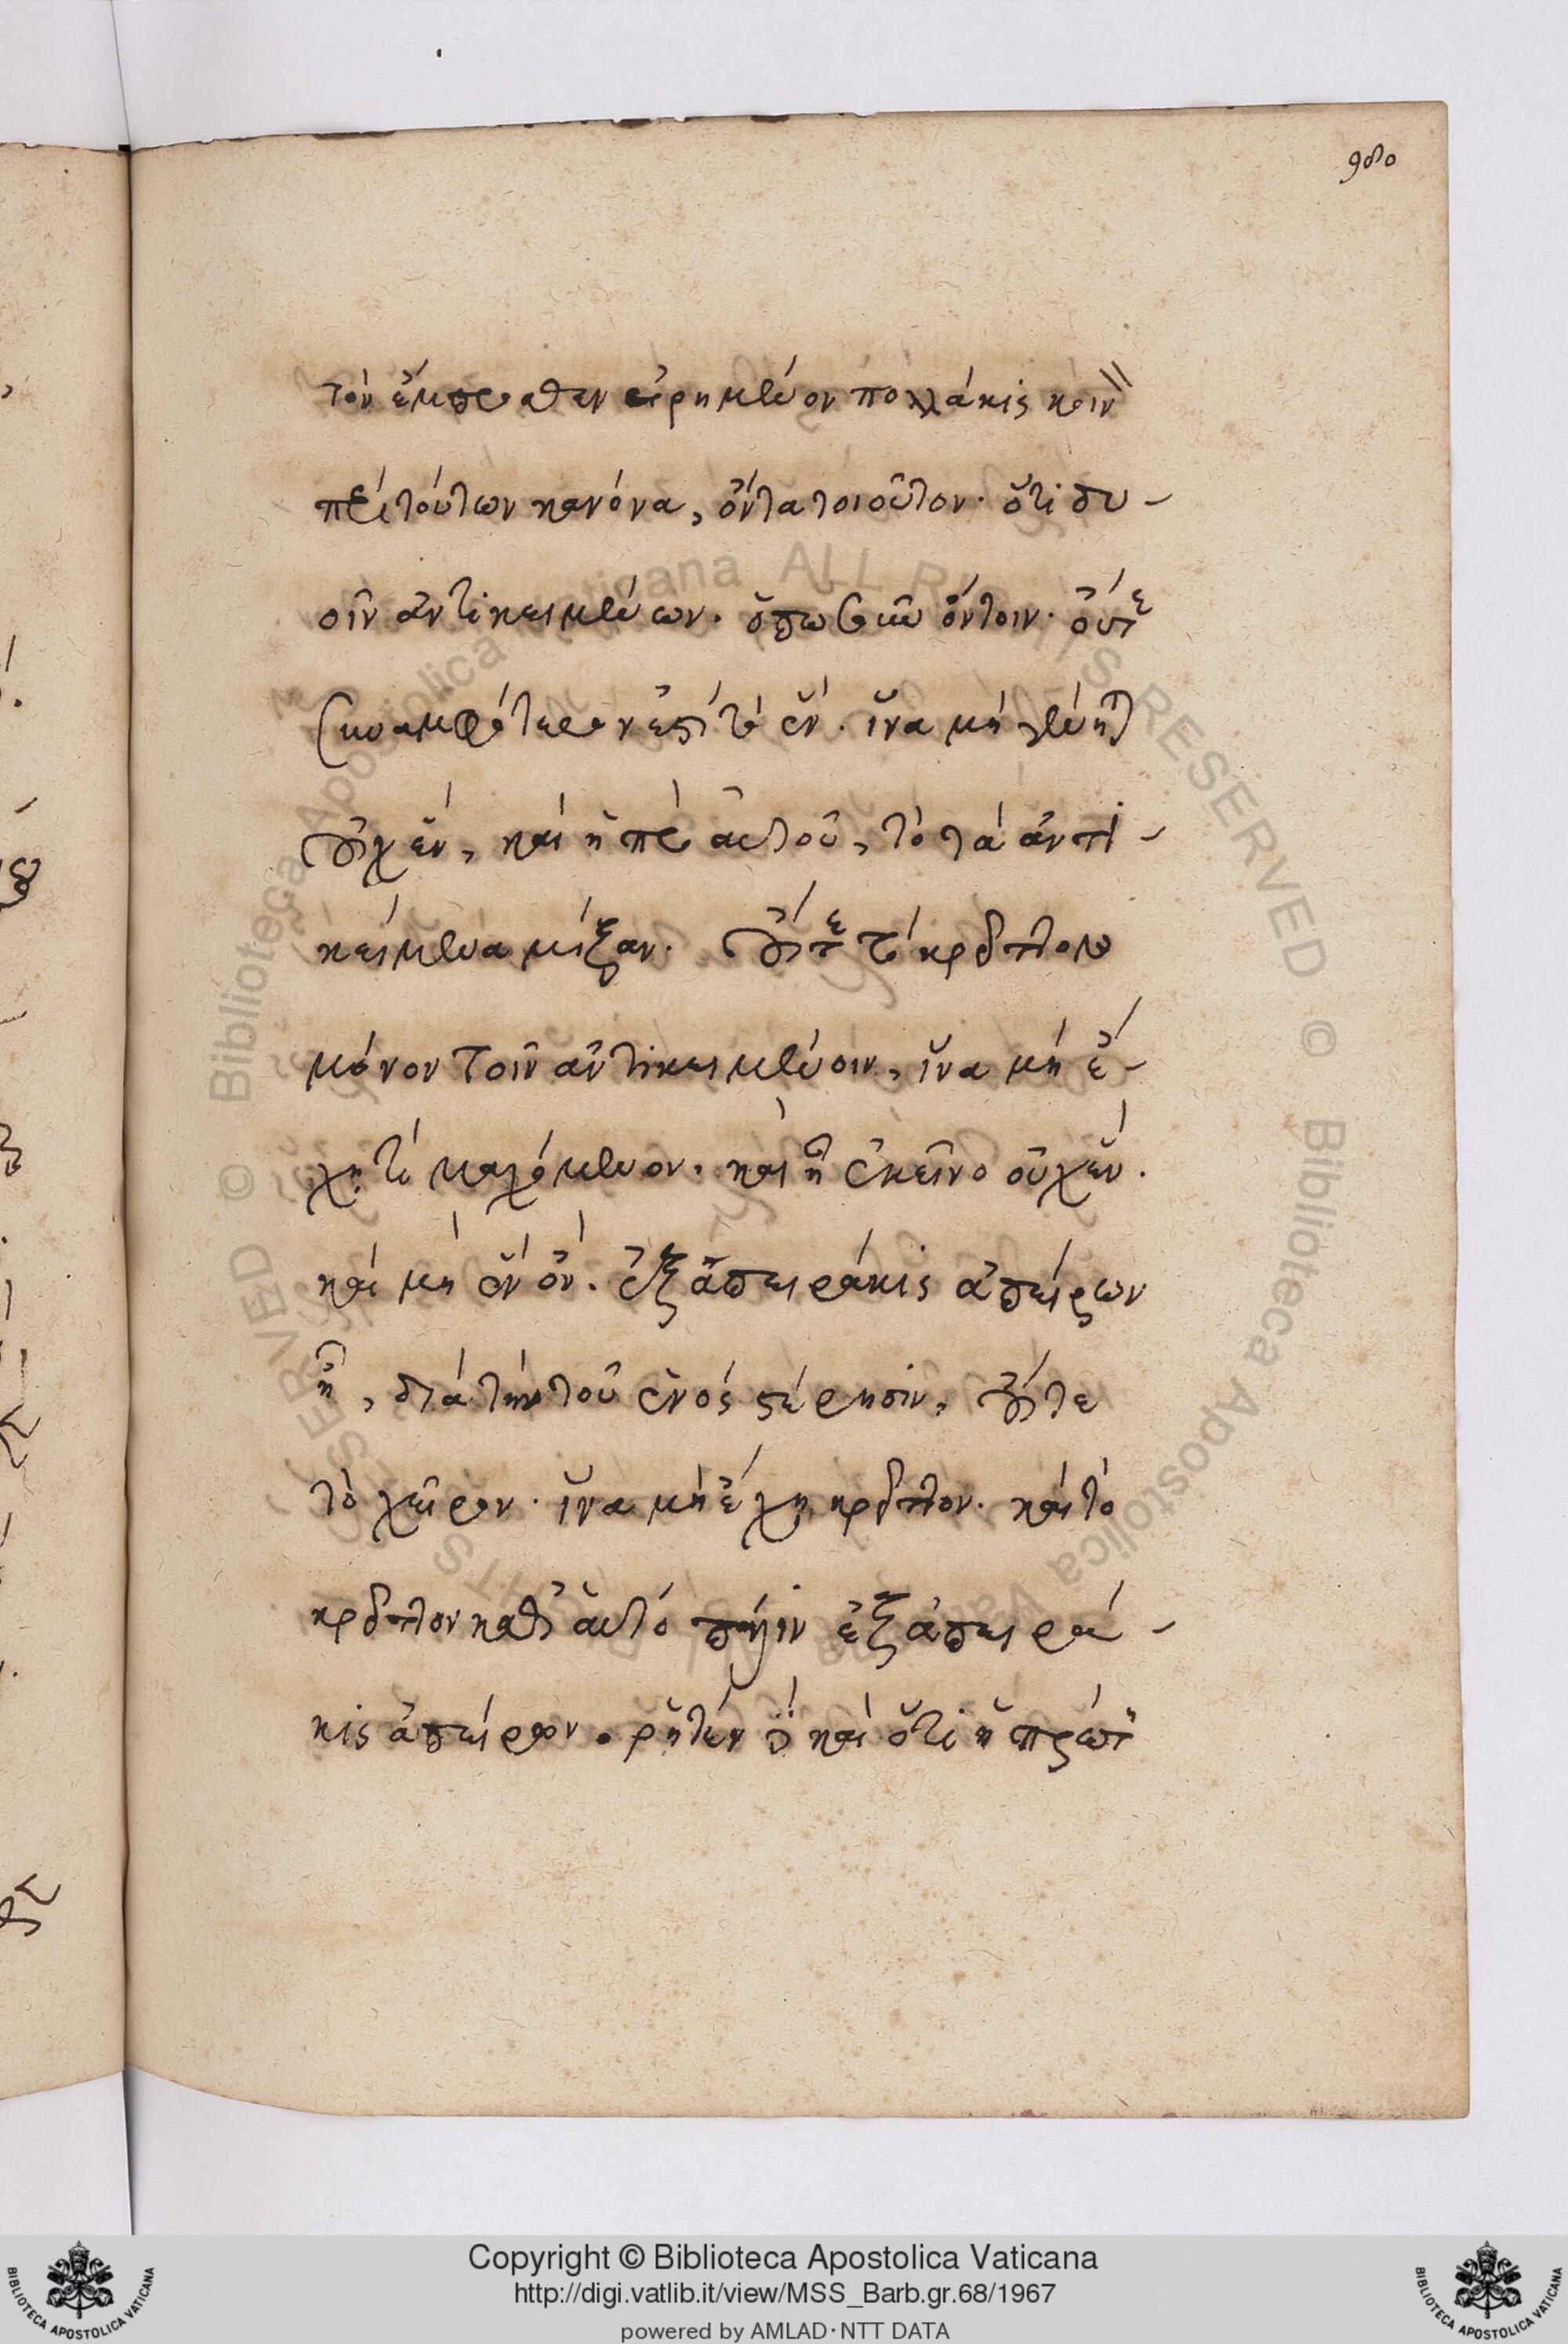 980
τὸν ἔμπροσθεν εἰρημένον πολλάκις
περὶ τούτων κανόνα, ὄντα τοιοῦτον· ὅτι δυ-
οῖν ἀντικειμένων. ὁπωσοῦν ὄντοιν· οὔτε
συναμφότερον ἐστὶ τὸ ἕν. ἵνα μὴ γένηται
οὐχ ἕν, καὶ ᾖ πρὸ αὐτοῦ, τὸ τὰ ἀντι-
κείμενα μίξαν. οὔτε τὸ κρεῖττον
μόνον τοῖν ἀντικειμένοιν, ἵνα μὴ ἔ-
χῃ τι μαχόμενον. καὶ ᾖ ἐκεῖνο οὐχ ἕν.
καὶ μὴ ἓν ὄν. ἐξ ἀπειράκις ἀπείρων
ᾖ, διὰ τὴν τοῦ ἑνὸς στέρησιν, οὔτε
τὸ χεῖρον· ἵνα μὴ ἔχῃ κρεῖττον. καὶ τὸ
κρεῖττον καθ' αὑτὸ πάλιν ἐξ ἀπειρά-
κις ἀπείρων. ῥητέον δὲ καὶ ὅτι ἡ πρώτη
Copyright © Biblioteca Apostolica Vaticana
http://digi.vatlib.it/view/MSS_Barb.gr.68/1967
powered by AMLAD·NTT DATA
BIBLIOTECA APOSTOLICA VATICANA
BIBLIOTECA APOSTOLICA VATICANA
© Biblioteca Apostolica Vaticana ALL RIGHTS RESERVED
© Biblioteca Apostolica Vaticana ALL RIGHTS RESERVED